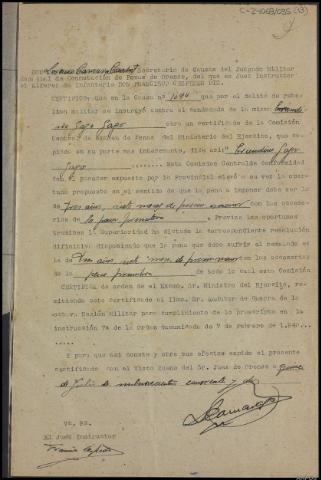 C-24003/035 (13)
Secretario de Causas del Juzgado Militar
de Conmutación de Penas de Orense, del que es Juez Instructor
el Alférez de Infantería DON FRANCISCO
CERTIFICO: Que en la Causa nº 1694 que por el delito de rebelion militar se instruyó contra el condenado de la misma
Gapo Gapo obra un certificado de la Comisión
Central de Examen de Penas del Ministerio del Ejército, que
copiado en su parte mas interesante, dice así: Secundino Gapo
Gapo Esta Comisión Central de conformidad
con el parecer expuesto por la Provincial elevó a su vez la oportuna propuesta en el sentido de que la pena a imponer debe ser la
de Tres años, siete meses de prision menor con las accesorias
de la pena primitiva. Previos los oportunos
tramites la Superioridad ha dictado la correspondiente resolución
definitiva disponiendo que la pena que debe sufrir el encartado es
la de Tres años, siete meses de prision menor con las accesorias
de la pena primitiva de todo lo cual esta Comisión
CERTIFICA de orden de el Excmo. Sr. Ministro del Ejército, remitiendo este certificado al Iltmo. Sr. Auditor de Guerra de la
Región Militar para cumplimiento de lo prescripto en la
instrucción 7ª de la Orden Comunicada de 7 de febrero de 1.940
Y para que así conste y otros sus efectos expido el presente
certificado con el Visto Bueno del Sr. Juez de Orense a quince
de Julio de mil novecientos cuarenta y
Vº. Bº.
El Juez Instructor